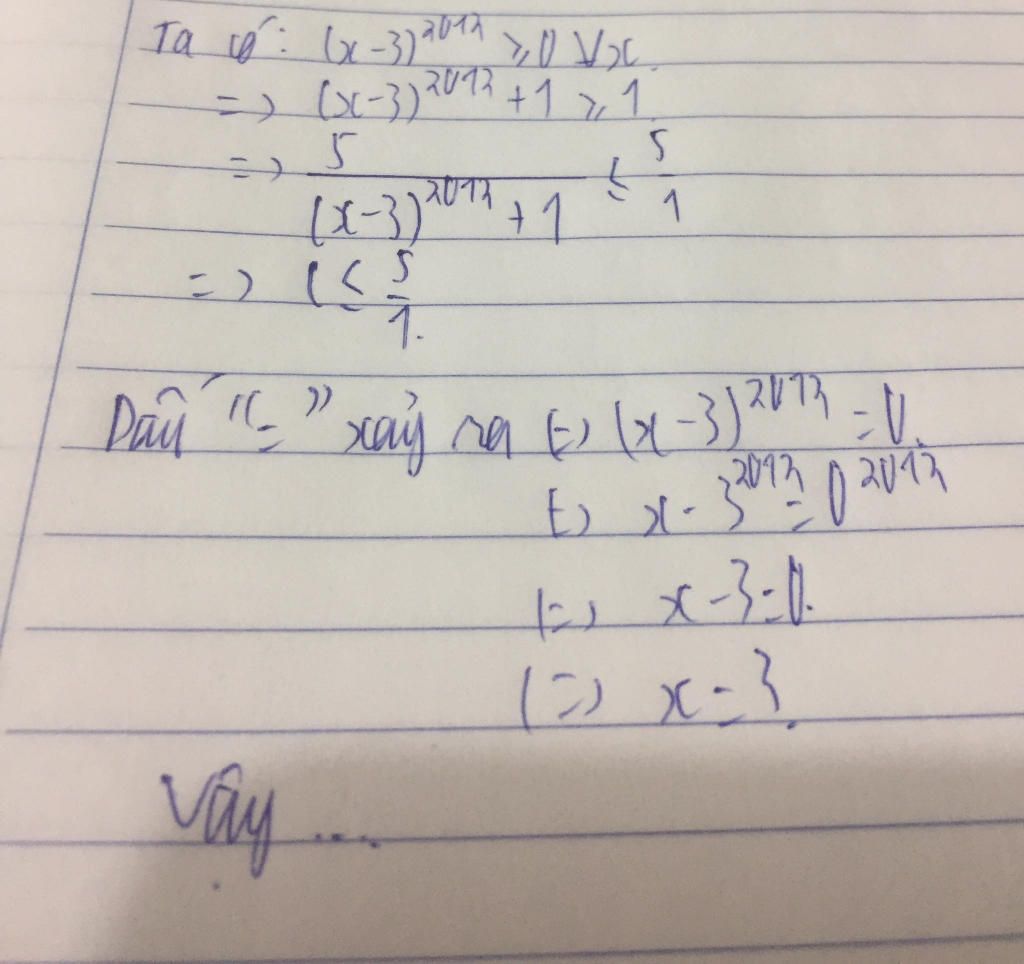 Ta có: (x-3)^2012 ≥ 0 ∀x.
=> (x-3)^2012 + 1 ≥ 1
=> 5/((x-3)^2012 + 1) ≤ 5/1
=> C ≤ 5/1.
Dấu "=" xảy ra <=> (x-3)^2012 = 0.
<=> x-3^2012 = 0^2012
<=> x-3=0.
<=> x=3.
Vậy ...